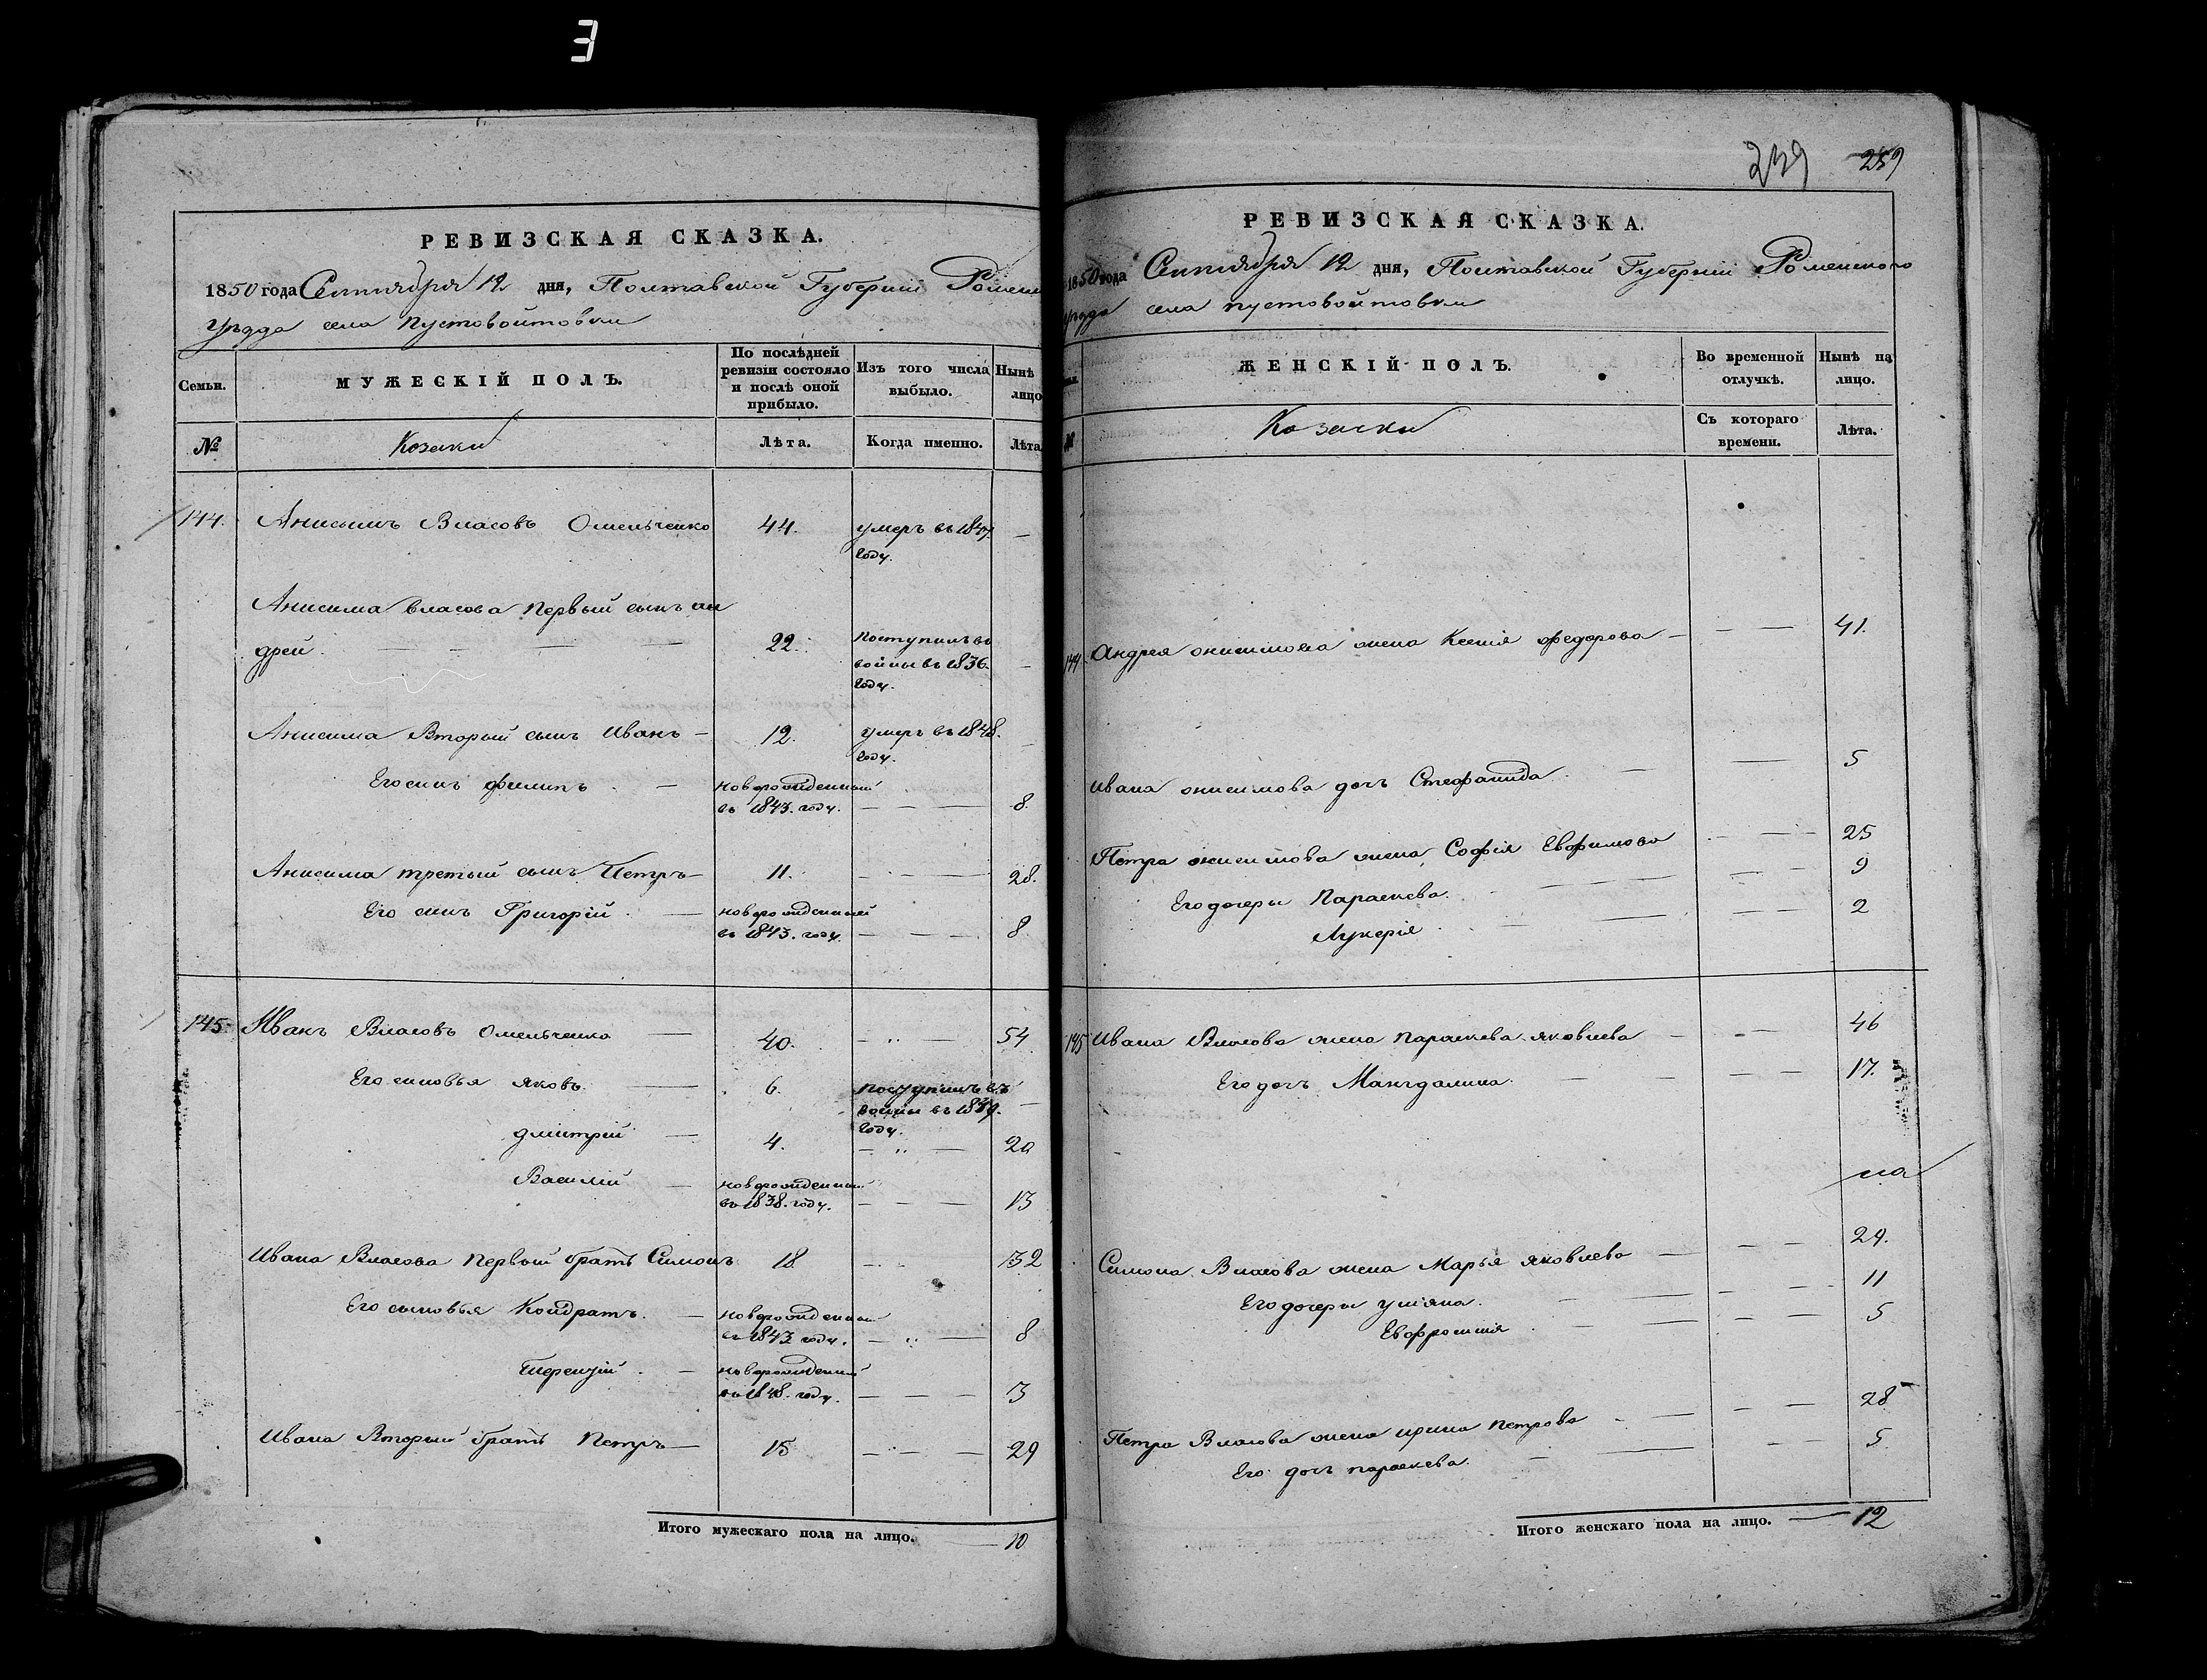 З
РЕВИЗСКАЯ СКАЗКА.
1850 года Сентября 12 дня, Полтавской Губерніи Роменс
уѣзда села Пустовойтовки
Семьи.
МУЖЕСКІЙ ПОЛЪ.
По послѣдней ревизіи состояло и послѣ оной прибыло.
Изъ того числа выбыло.
Нынѣ лицо
№
Козаки
Лѣта.
Когда именно.
Лѣта
144. Анисимъ Власовъ Омельченко 44. умеръ въ 1847 —
году.
Анисима Власова первый сынъ Ан
дрей. — — — — 22. поступилъ въ
войны въ 1836. —
году.
Анисима Второй сынъ Иванъ — 12. умеръ въ 1848. —
году.
Его сынъ Филипъ. — новорожденный
въ 1843. году. — — — 8.
Анисима третый сынъ Петръ — 11. — — 28.
Его сынъ Григорій. — новорожденный
въ 1843. году. — — — 8
145. Иванъ Власовъ Омельченко — 40. — „ — 54
Его сыновья Яковъ. — 6. поступилъ въ
войны въ 1839. —
году.
Дмитрій — 4. — „ — 20
Василій — новорожденный
въ 1838. году. — — — 13
Ивана Власова Первый братъ Симонъ 18 — 32
Его сыновья Кондратъ. — новорожденный
въ 1843 году. — „ — 8
Терентій. — новорожденный
въ 1848. году. — — — 3
Ивана Вторый братъ Петръ — 15 — — — 29
Итого мужескаго пола на лицо. — 10
239 259
РЕВИЗСКАЯ СКАЗКА.
1850 года Сентября 12 дня, Полтавской Губерніи Роменского
уѣзда села пустовойтовки
ЖЕНСКІЙ ПОЛЪ.
Во временной отлучкѣ.
Нынѣ на лицо.
№
Козачки
Съ котораго времени.
Лѣта.
144. Андрея онисимова жена Ксенія Федорова — — — 41.
Ивана онисимова дочъ Стефанида. — — 5
Петра онисимова жена Софія Евфимова — — 25
Его дочеры Параскева. — — — 9
Лукерія — — — 2
145 Ивана Власова жена Параскева Яковлева — — — 46
Его дочъ Макгдалина. — — — 17.
на
Симона Власова жена Марья Яковлева — — — 24.
Его дочеры Уліяна. — — — 11
Евфросинія — — — 5
Петра Власова жена Ирина Петрова — — — 28
Его дочъ параскева. — — — 5.
Итого женскаго пола на лицо. — 12